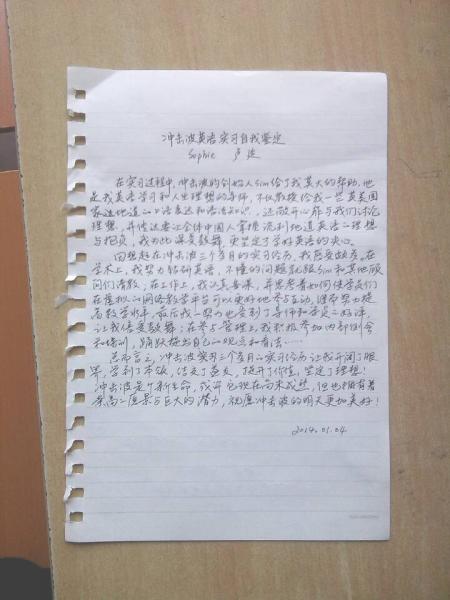 冲击波英语实习自我鉴定
Sophie 卢
在实习过程中,冲击波的创始人Sim给了我莫大的帮助,他
是我英语学习和人生理想的导师,不仅教授给我一些英美国
家达地道的口语表达和语法知识,还敞开心扉与我们讨论
理想,并传达要让全体中国人掌握流利地道英语的理想
与抱负,我为此深受鼓舞,更坚定了学好英语的决心。
回想起在冲击波三个月的实习经历,我感受颇多。在
学术上,我努力钻研英语,不懂的问题就跟Sim和其他顾
问们请教;在工作上,我认真备课,并思考着如何使学员们
在虚拟的网络教学平台可以更好地参与互动,进而努力提
高教学水平,最后我的努力也受到了导师和学员的好评,
让我倍受鼓舞;在参与管理上,我积极参加内部例会
和培训,踊跃提出自己的观点和看法……
总而言之,冲击波实习三个月的实习经历让我开阔了眼
界,学到了本领,结交了益友,提升了价值,坚定了理想!
冲击波是个新生命,或许它现在尚未成熟,但也拥有着
崇高的愿景与巨大的潜力,祝愿冲击波的明天更加美好!
2014.01.04